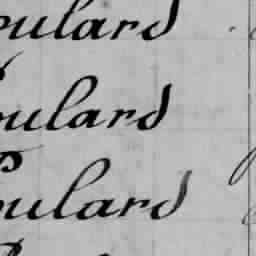 oulard
oulard
oulard